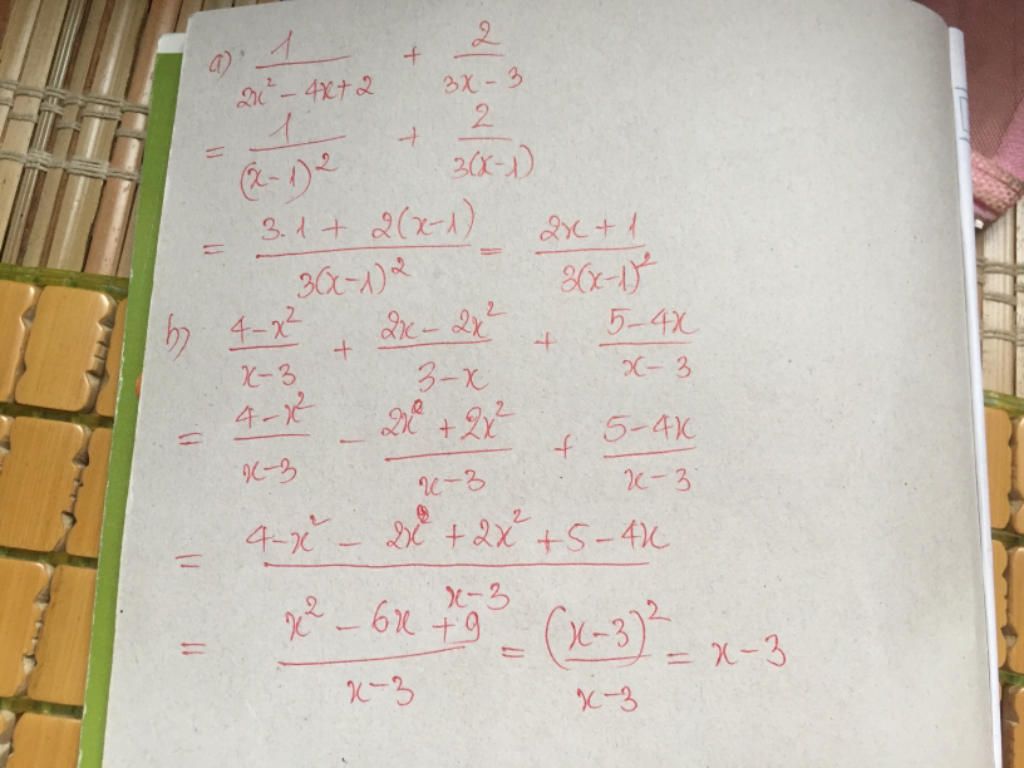 a) 1/(2x² - 4x + 2) + 2/(3x - 3)
= 1/(x - 1)² + 2/(3(x - 1))
= (3.1 + 2(x - 1))/(3(x - 1)²) = (2x + 1)/(3(x - 1)²)
b) (4 - x²)/(x - 3) + (2x - 2x²)/(3 - x) + (5 - 4x)/(x - 3)
= (4 - x²)/(x - 3) - (2x + 2x²)/(x - 3) + (5 - 4x)/(x - 3)
= (4 - x² - 2x + 2x² + 5 - 4x)/(x - 3)
= (x² - 6x + 9)/(x - 3) = (x - 3)²/(x - 3) = x - 3